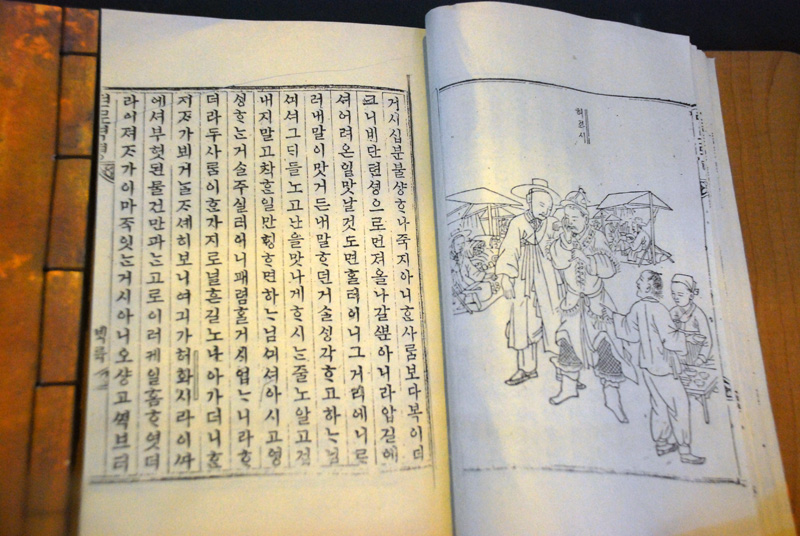 허화시
거시십분불샹ᄒᆞ나죽지아니ᄒᆞᆫ사ᄅᆞᆷ보다복이더
크니비단텬셩으로먼져올나갈ᄲᅮᆫ아니라압길에
셔어려온일맛날것도면ᄒᆞᆯ터이니그거리에니ᄅᆞ
러내말이맛거든내말ᄒᆞ던거슬ᄉᆡᆼ각ᄒᆞ고하ᄂᆞ님
ᄭᅴ셔그ᄃᆡ들노고난을맛나게ᄒᆞ시ᄂᆞᆫ줄노알고겁
내지말고챡ᄒᆞᆫ일만ᄒᆡᆼᄒᆞ면하ᄂᆞ님ᄭᅴ셔아시고영
ᄉᆡᆼᄒᆞᄂᆞᆫ거슬주실터이니패렴ᄒᆞᆯ거시업ᄂᆞ니라ᄒᆞ
더라두사ᄅᆞᆷ이ᄒᆞᆫ가지로널ᄒᆞᆫ길노나아가더니ᄒᆞᆫ
져ᄌᆞ가뵈거ᄂᆞᆯᄌᆞ셰히보니여긔가허화시라이ᄯᅡ
에셔부헛된물건만파ᄂᆞᆫ고로이러케일홈ᄒᆞ엿더
라이져ᄌᆞ가이마즉잇ᄂᆞᆫ거시아니오샹고ᄯᅢ브터
텬로력뎡